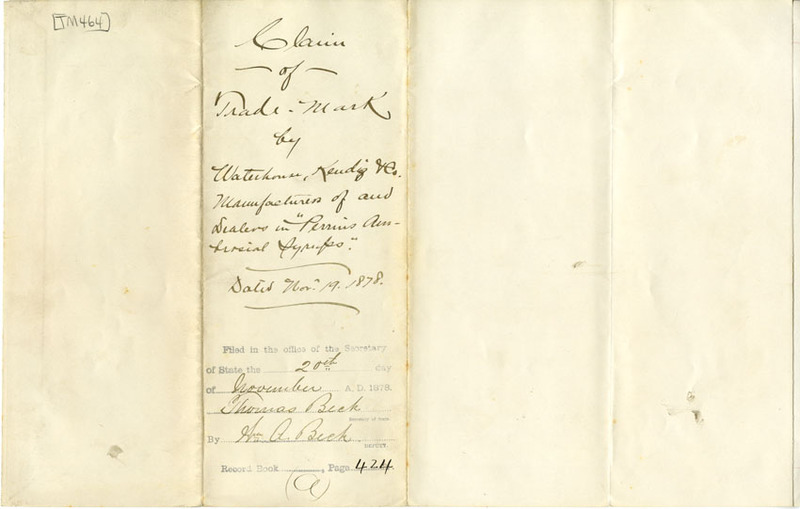 [TM464]
Claim
— of —
Trade-Mark
by
Waterhouse, Kendig & Co.
Manufacturers of and
Dealers in "Perrins Am-
brosial Syrups".
Dated Nov. 19. 1878.
Filed in the office of the Secretary
of State the 20th day
of November A. D. 1878.
Thomas Beck
Secretary of State
By Wm A. Beck.
DEPUTY.
Record Book , Page 424
(a)